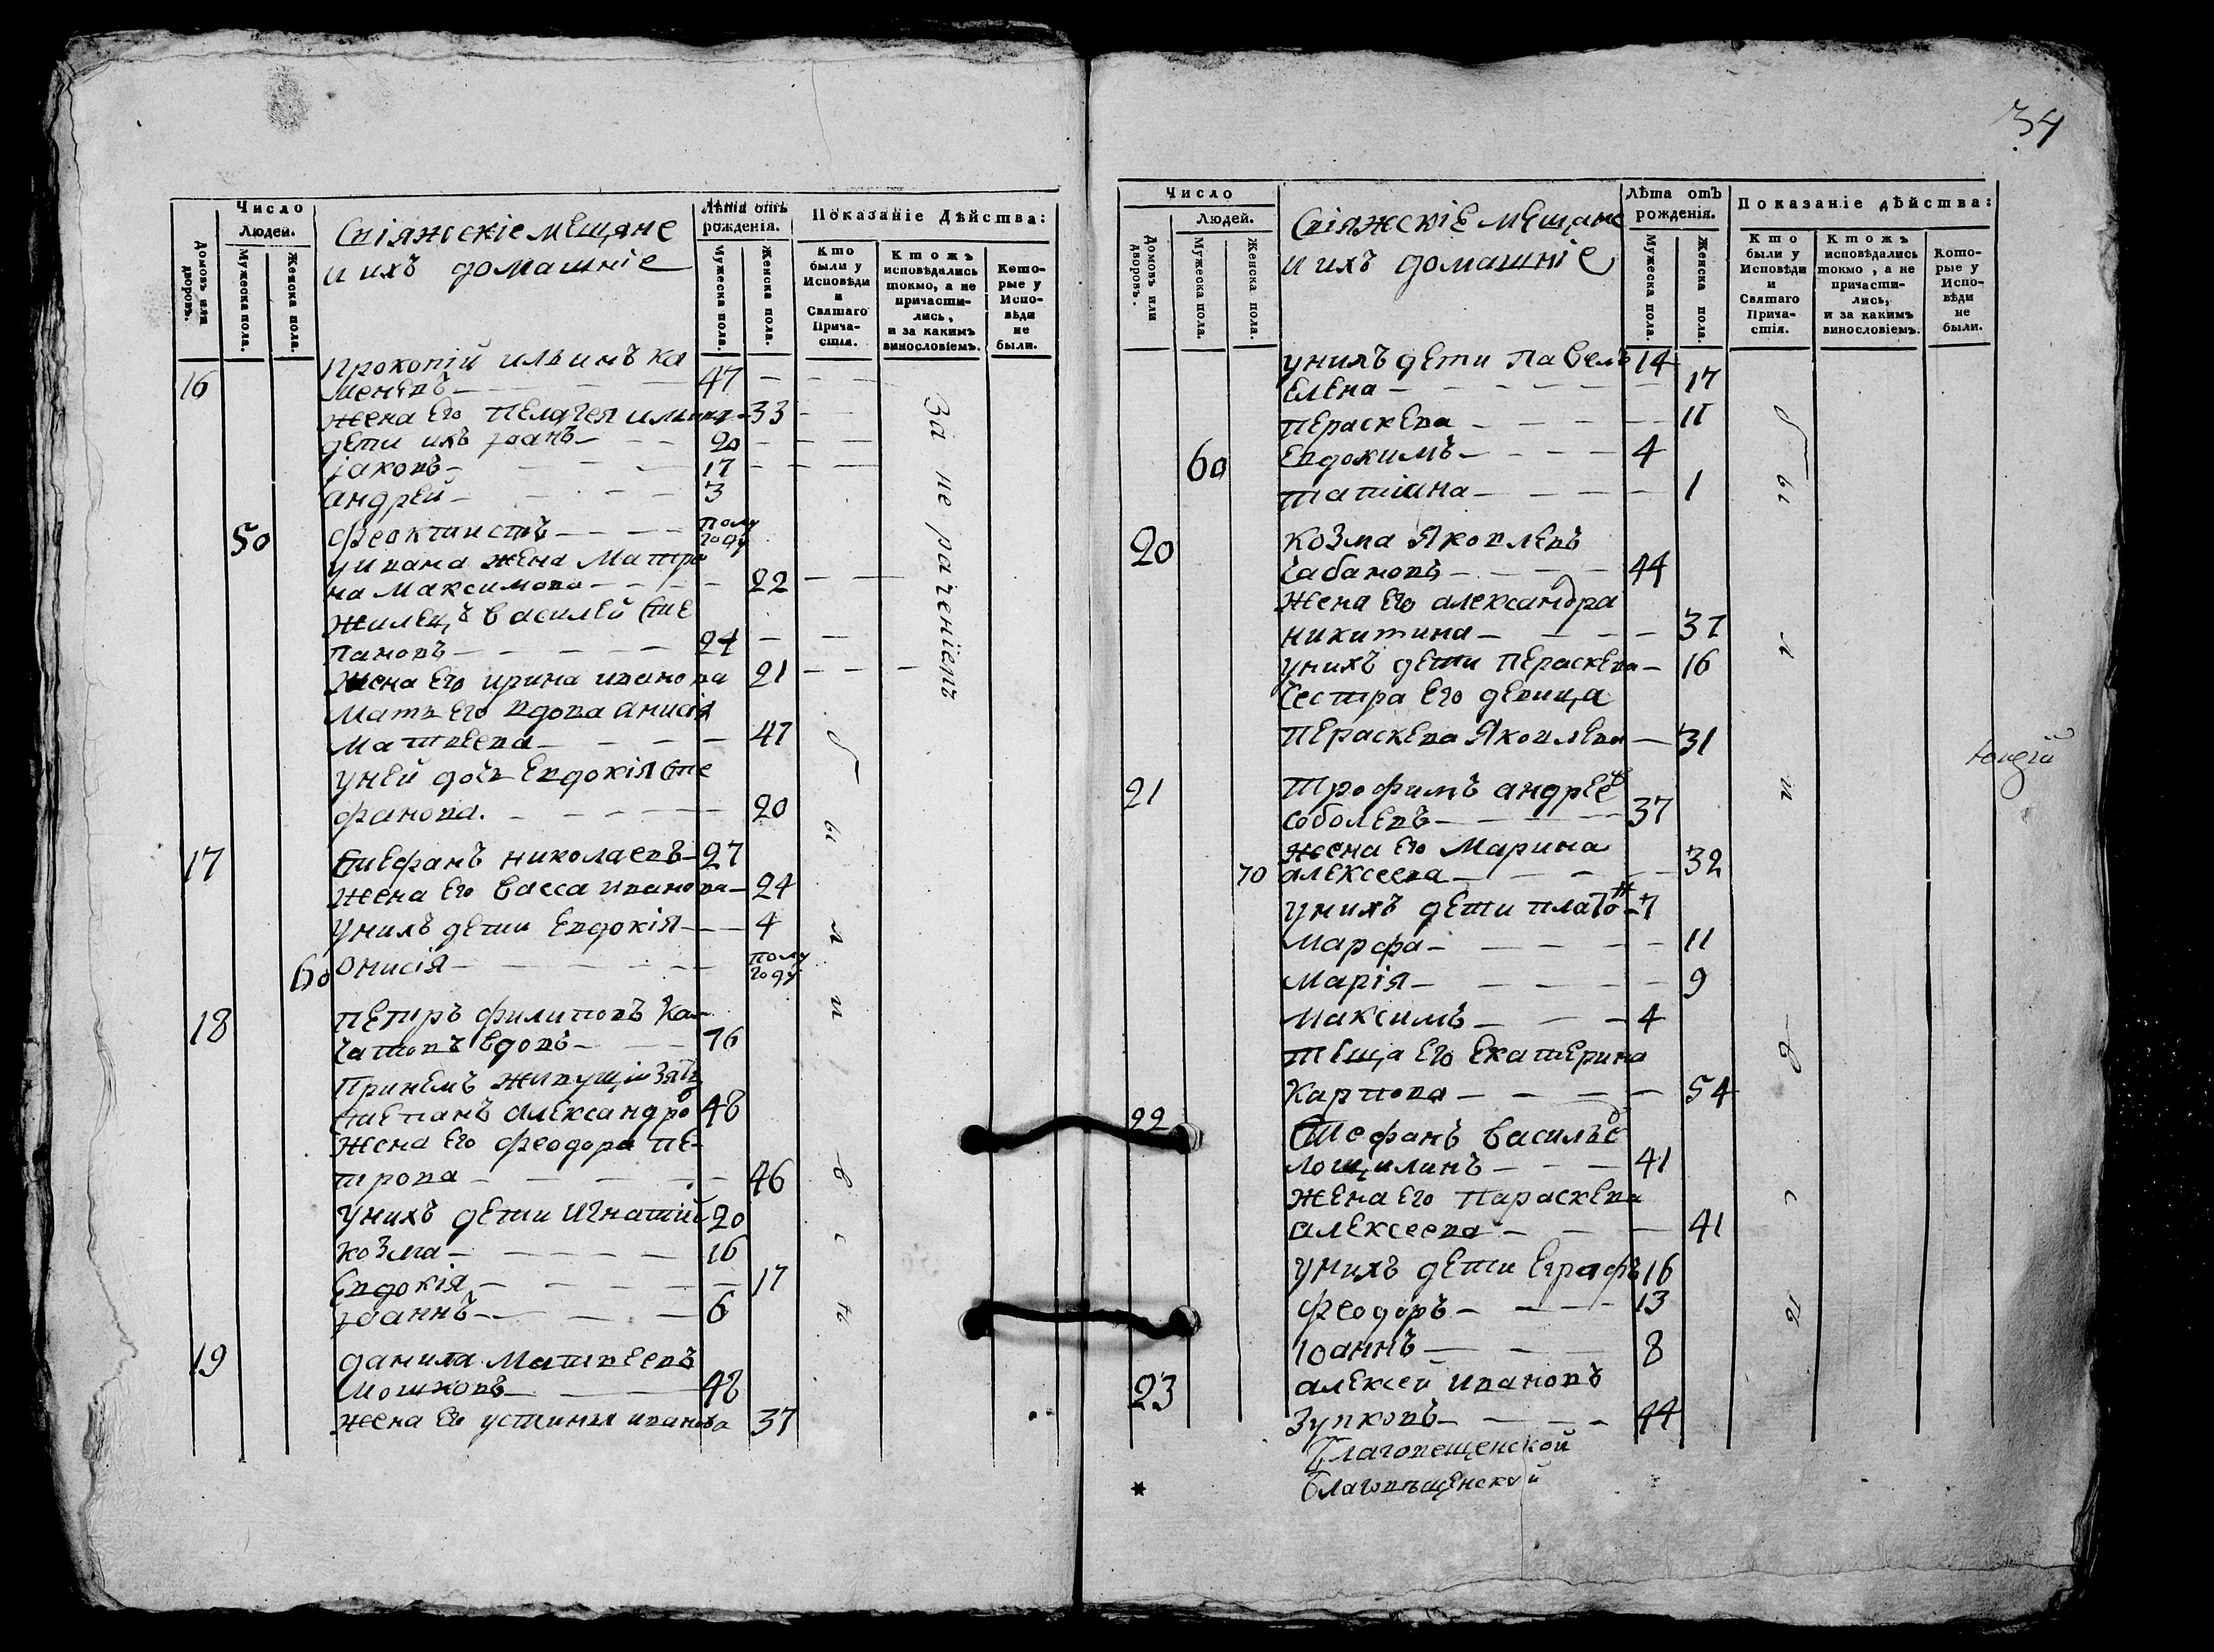 Число
Людей.
Домовъ или дворовъ.
Мужеска пола.
Женска пола.
Свіяжскіе мещане
и ихъ домашніе
Лѣта отъ рожденія.
Мужеска пола.
Женска пола.
Показаніе Дѣйства:
Кто были у Исповѣди и Святаго Прича-стія.
Ктожъ исповѣдались токмо, а не причасти-лись, и за какимъ винословіемъ.
Кото-рые у Испо-вѣди не были.
16 Прокопій ильинъ Ка
меневъ 47
жена Его Пелагея ильина 33
дети ихъ Іоанъ 20
Іаковъ 17
андрей 3
50 Феоктистъ полу году
у ивана жена Матро
на Максимова 22
жилецъ василей сте
пановъ 24
жена Его ирина иванова 21
Мать Его вдова анисія
Матвеева 47
у ней дочь Евдокія сте
фанова. 20
17 стефанъ николаевъ 27
жена Его васса иванова 24
у нихъ дети Евдокія 4
60 Онисія полу году
18 Петръ филиповъ Ка
чатовъ вдовъ 76
При немъ живущій зять
степанъ александро в 48
жена Его феодора пе
трова 46
у нихъ дети Игнатий 20
козма 16
Евдокія 17
Іоаннъ 6
19 данила Матвеевъ
Мошковъ 48
жена Ево устинья иванова 37
За не раченіемъ
были в сть
34
Число
Людей.
Домовъ или дворовъ.
Мужеска пола.
Женска пола.
Свіяжскіе Мещане
и ихъ домашніе
Лѣта отъ рожденія.
Мужеска пола.
Женска пола.
Показаніе дѣйства:
Кто были у Исповѣди и Святаго Прича-стія.
Ктожъ исповѣдались токмо, а не причасти-лись, и за какимъ винословіемъ.
Кото-рые у Испо-вѣди не были.
у нихъ дети Павелъ 14
Елена 17
Пераскева 11
60 Евдокимъ 4
татиана 1
20 Козма Яковлевъ
Чабановъ 44
жена Его александра
никитина 37
у нихъ дети Пераскева 16
Сестра Его девица
Пераскева Яковлева 31
21 Трофимъ андрее в
соболевъ 37
жена Его Марина
70 алексеева 32
у нихъ дети плато н 7
Марфа 11
Марія 9
Максимъ 4
теща Его Екатерина
Карпова 54
22 Стефанъ васильѣ в
лощилинъ 41
жена Его Параскева
алексеева 41
у нихъ дети Еграфъ 16
феодоръ 13
Іоаннъ 8
23 алексей ивановъ
Зупковъ 44
Благовещенской
* Благовѣщенской
были в сѣ